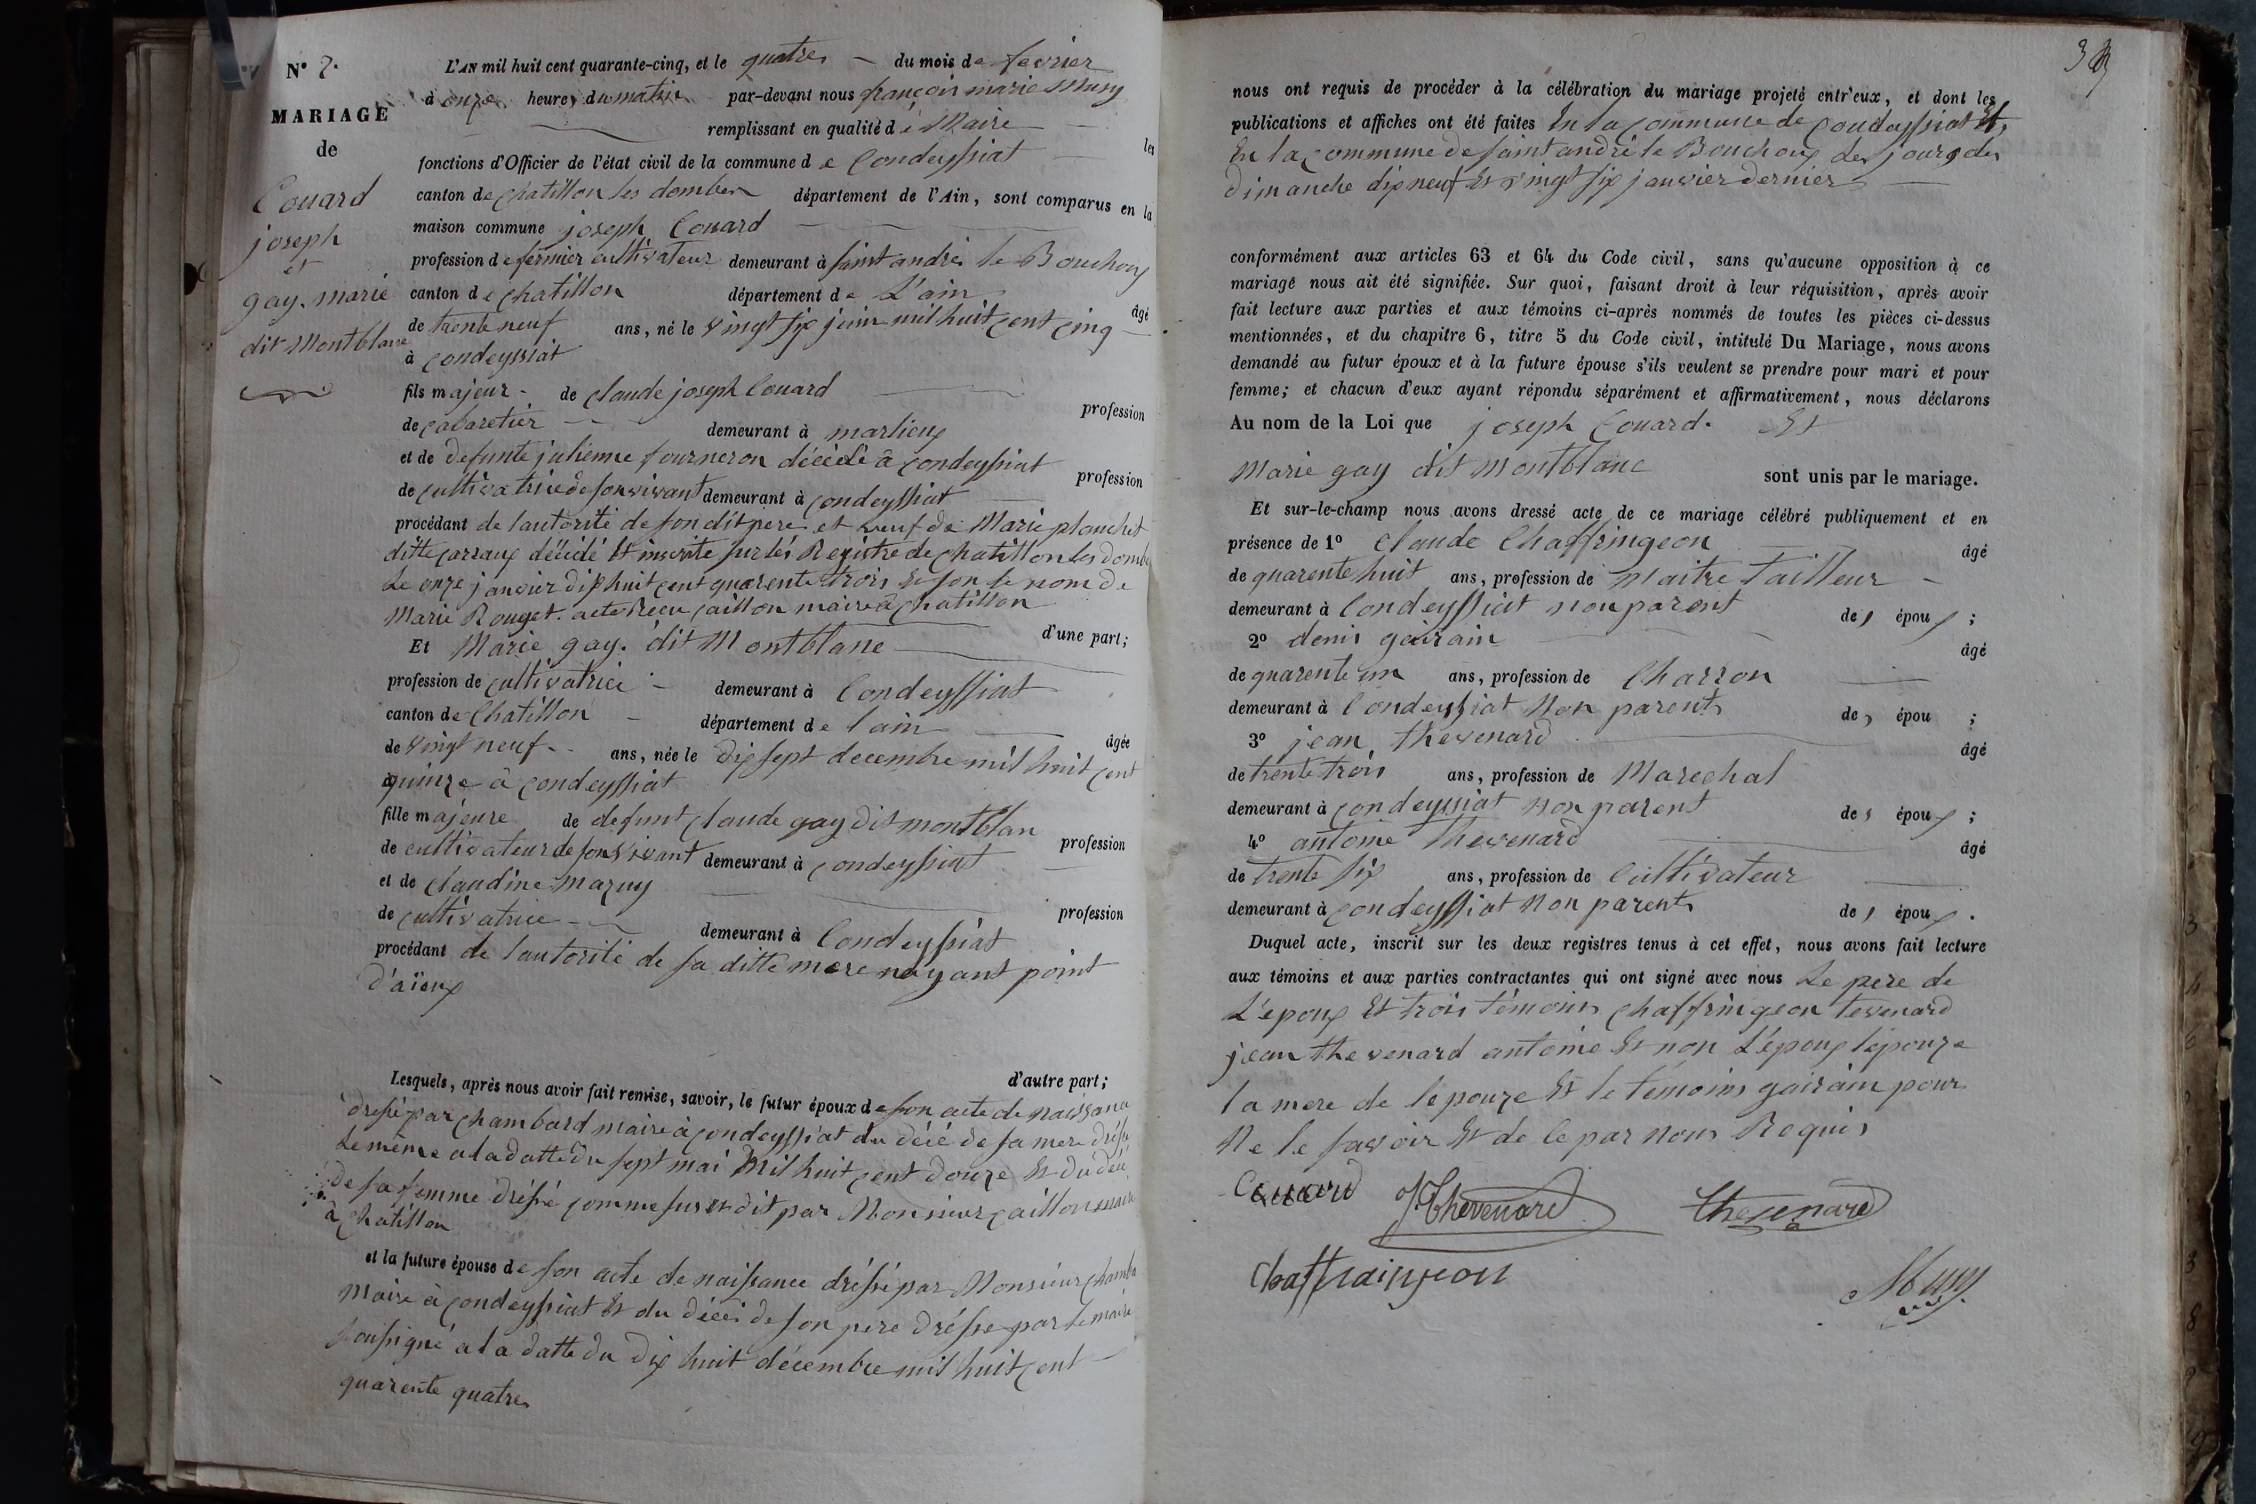 N° 2.
MARIAGE
de
Couard
joseph
et
gay. marie
dit Montblanc
L'AN mil huit cent quarante-cinq, et le quatre du mois de fevrier
à onze heures du matin par-devant nous françois marie Muny
remplissant en qualité de Maire les
fonctions d'Officier de l'état civil de la commune de Condeyssiat
canton de chatillon les dombes département de l'Ain, sont comparus en la
maison commune joseph Couard
profession de fermier cultivateur demeurant à saint andré le Bouchoux
canton de chatillon département de L'ain âgé
de trente neuf ans, né le vingt six juin mil huit cent cinq
à condeyssiat
fils majeur de claude joseph Couard profession
de cabaretier demeurant à marlieux
et de defunte julienne fourneron décédé à condeyssiat profession
de cultivatrice de son vivant demeurant à condeyssiat
procédant de l'autorité de son dit pere et veuf de Marie planchet
ditte carraux décédé Et inscrite sur les Registre de chatillon les Dombe
Le onze janvier dix huit cent quarente trois Et son le nom de
Marie Rouget. acte Recu caillon maire à chatillon
d'une part;
Et Marie gay. dit Montblanc
profession de cultivatrice demeurant à Condeyssiat
canton de Chatillon département de l'ain âgée
de vingt neuf ans, née le dix sept decembre mil huit cent
quinze à condeyssiat
fille majeure de defunt claude gay dit montblan profession
de cultivateur de son vivant demeurant à condeyssiat
et de claudine mazuy profession
de cultivatrice demeurant à Condeyssiat
procédant de l'autorité de sa ditte mere nayant point
d'aïeux
d'autre part;
Lesquels, après nous avoir fait remise, savoir, le futur époux de son acte de naissance
dressé par chambard maire à condeyssiat du décé de sa mere dréssé
Le même a la datte du sept mai Mil huit cent douze Et du décé
de sa femme dréssé comme sus Et dit par Monsieur caillon maire
à chatillon
et la future épouse de son acte de naissance dréssé par Monsieur chamba
Maire à condeyssiat Et du décés de son pere dréssé par le maire
soussigné a la datte du dix huit décembre mil huit cent
quarente quatre
nous ont requis de procéder à la célébration du mariage projeté entr'eux, et dont les
publications et affiches ont été faites En la commune de Condeyssiat Et
En la commune de saint andré le Bouchoux les jours des
Dimanche dix neuf Et vingt six janvier dernier
conformément aux articles 63 et 64 du Code civil, sans qu'aucune opposition à ce
mariage nous ait été signifiée. Sur quoi, faisant droit à leur réquisition, après avoir
fait lecture aux parties et aux témoins ci-après nommés de toutes les pièces ci-dessus
mentionnées, et du chapitre 6, titre 5 du Code civil, intitulé Du Mariage, nous avons
demandé au futur époux et à la future épouse s'ils veulent se prendre pour mari et pour
femme; et chacun d'eux ayant répondu séparément et affirmativement, nous déclarons
Au nom de la Loi que joseph Couard. Et
Marie gay dit montblanc sont unis par le mariage.
Et sur-le-champ nous avons dressé acte de ce mariage célébré publiquement et en
présence de 1° Claude Chaffringeon âgé
de quarente huit ans, profession de Maitre Tailleur
demeurant à Condeyssiat non parent des époux;
2° denis gairain âgé
de quarente un ans, profession de Charron
demeurant à Condeyssiat Non parents des épou;
3° jean thevenard âgé
de trente trois ans, profession de Marechal
demeurant à condeyssiat Non parent des époux;
4° antoine thevenard âgé
de trente six ans, profession de Cultivateur
demeurant à condeyssiat Non parents des époux.
Duquel acte, inscrit sur les deux registres tenus à cet effet, nous avons fait lecture
aux témoins et aux parties contractantes qui ont signé avec nous Le pere de
L'époux Et trois témoins chaffringeon tevenard
jean thevenard antoine Et non L'époux l'épouze
la mere de lepouze Et le témoins gairain pour
Ne le savoir Et de ce par nous Requis
Couard J Thevenard thevenard
Chaffraingeon Muny